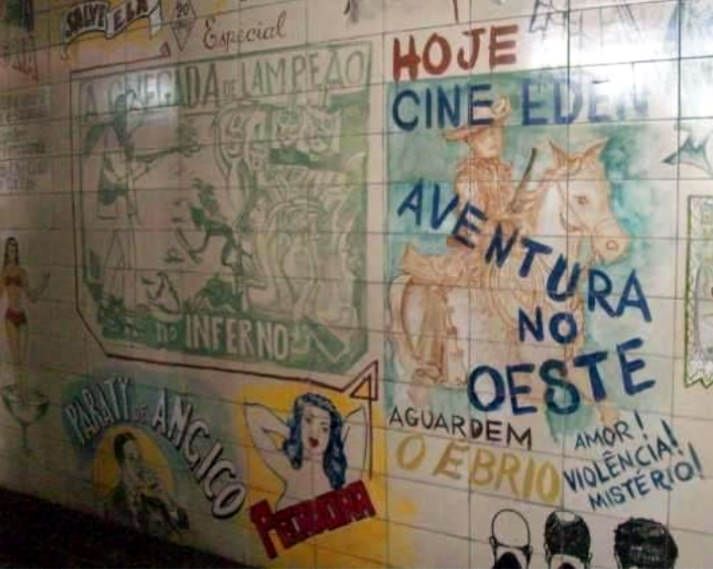 SALVE ELA
20
Especial
A CHEGADA DE LAMPEÃO
no INFERNO
HOJE
CINE EDEN
AVENTURA
NO
OESTE
AGUARDEM
O ÉBRIO
AMOR!
VIOLÊNCIA!
MISTÉRIO!
PARATY de ANGICO